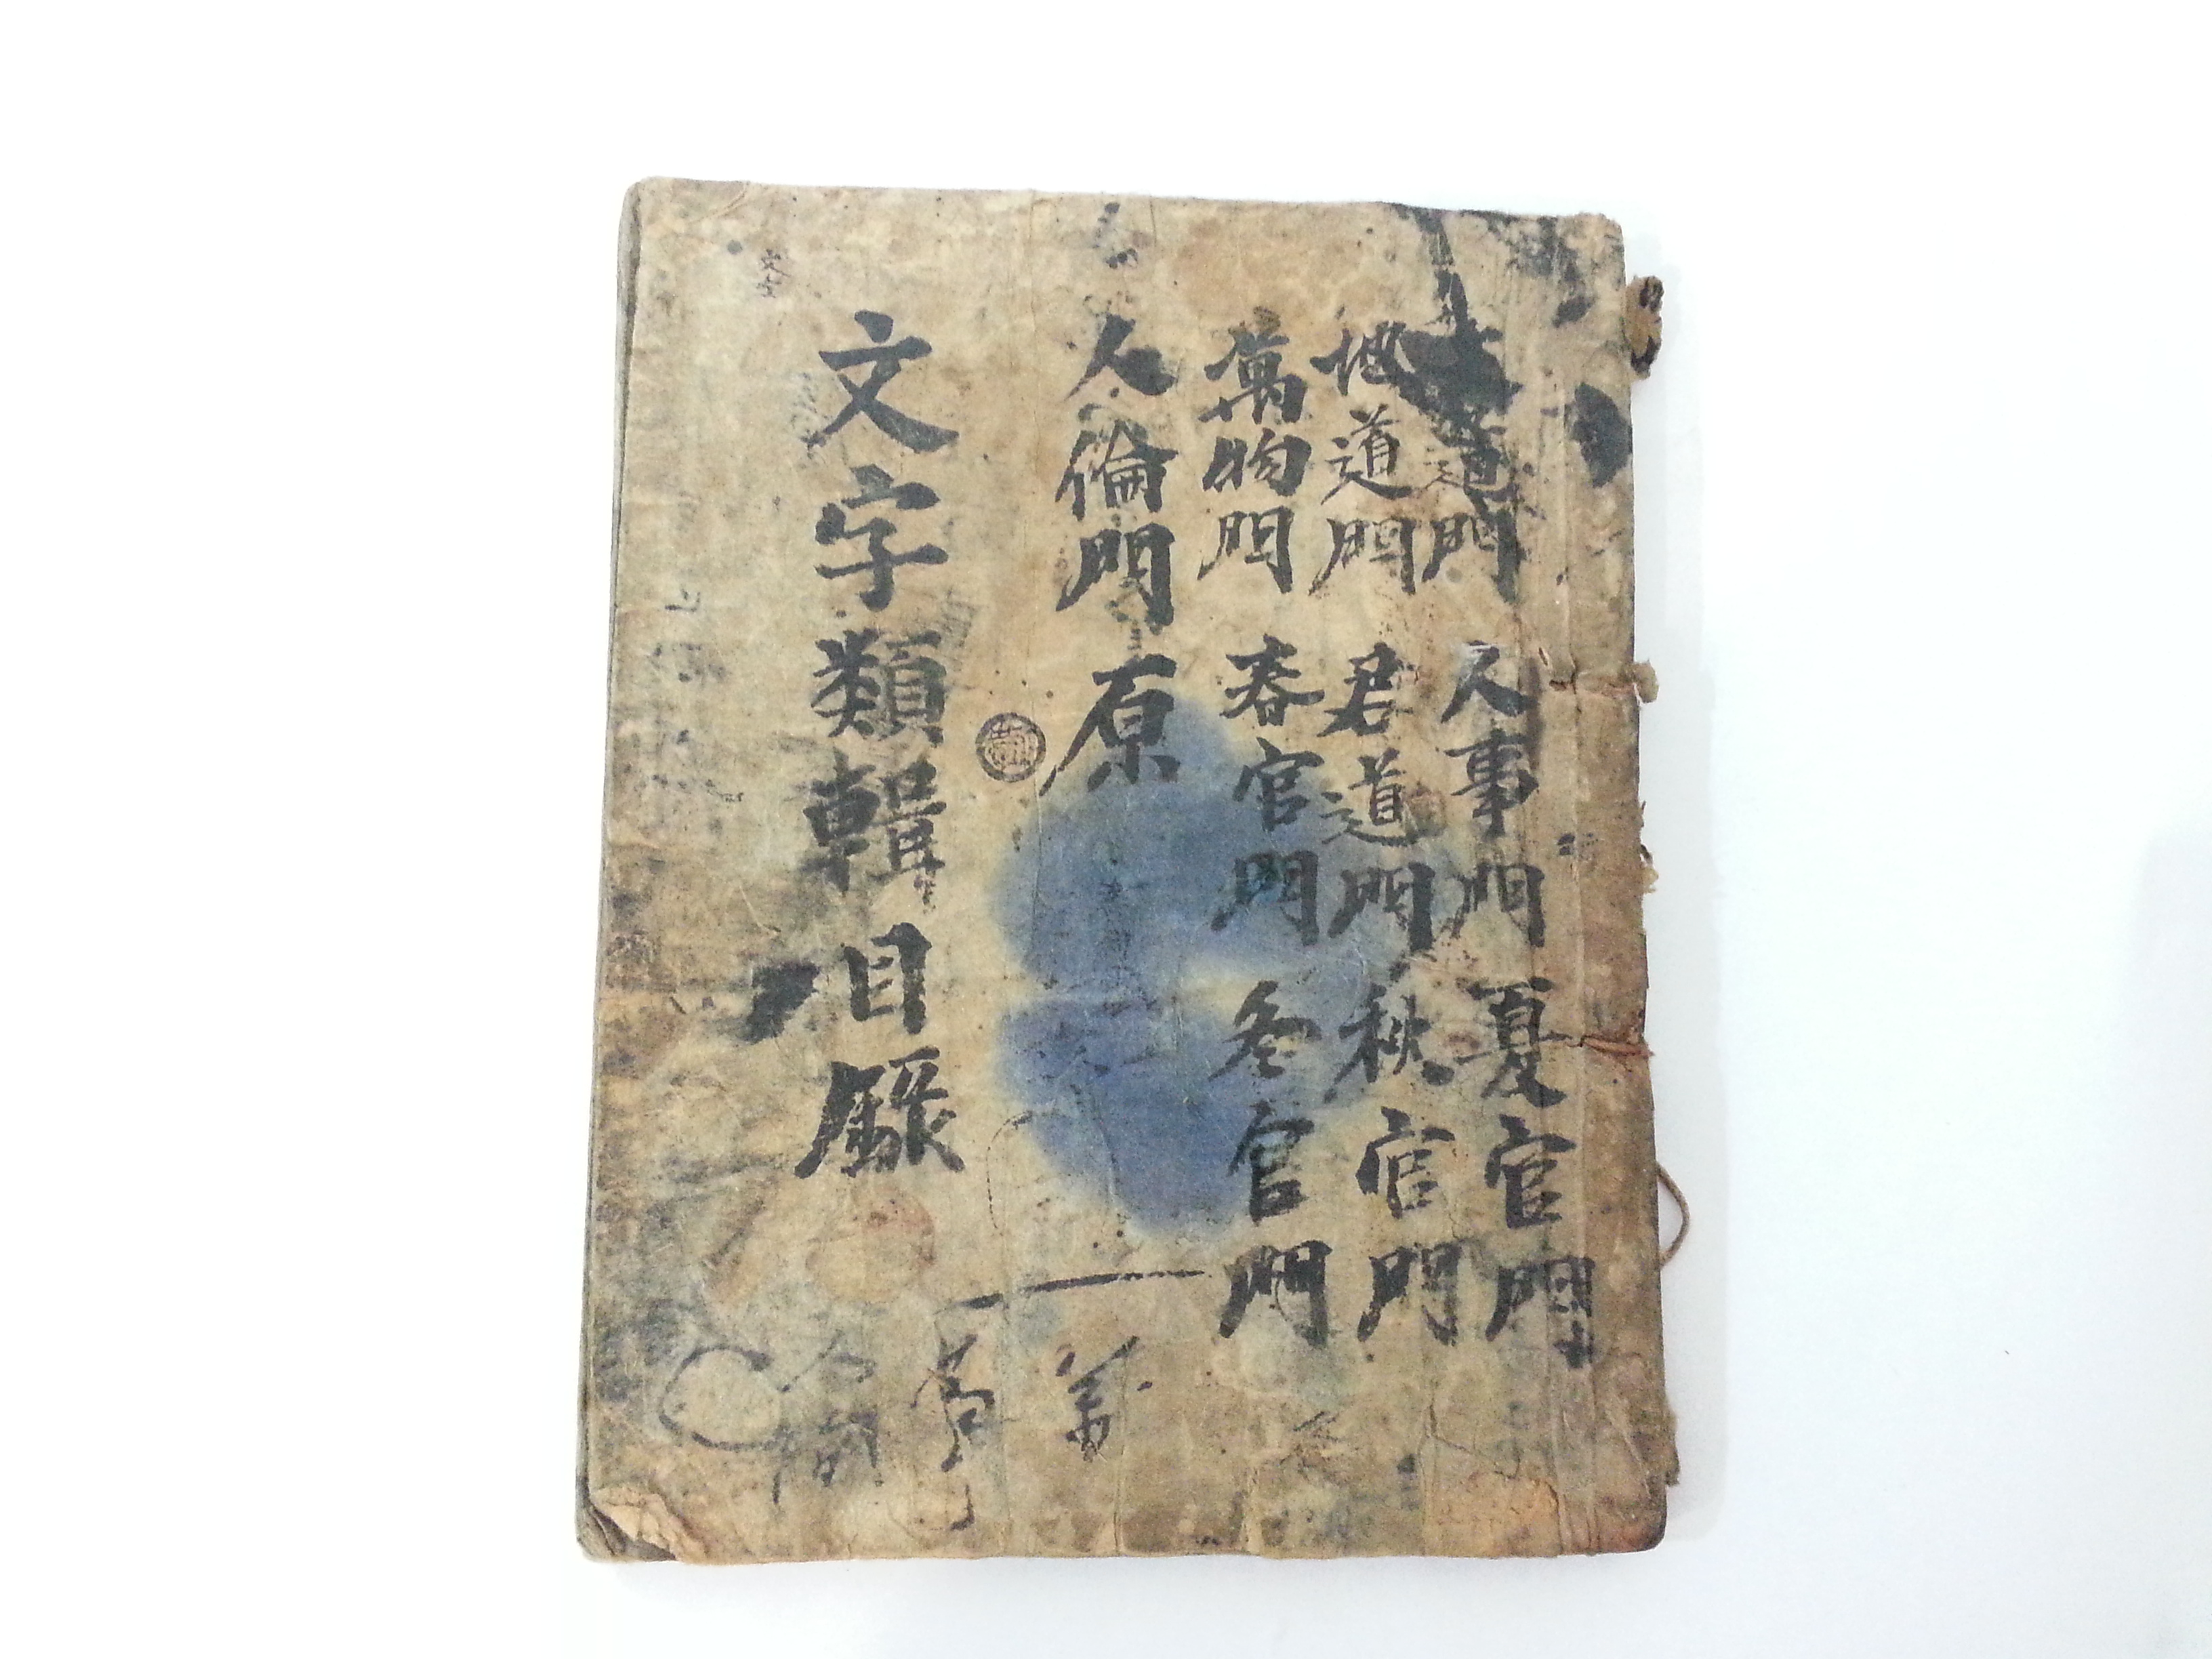 道門 人事門 夏官門
地道門 君道門 秋官門
萬物門 春官門 冬官門
人倫門 原
文字類輯目錄